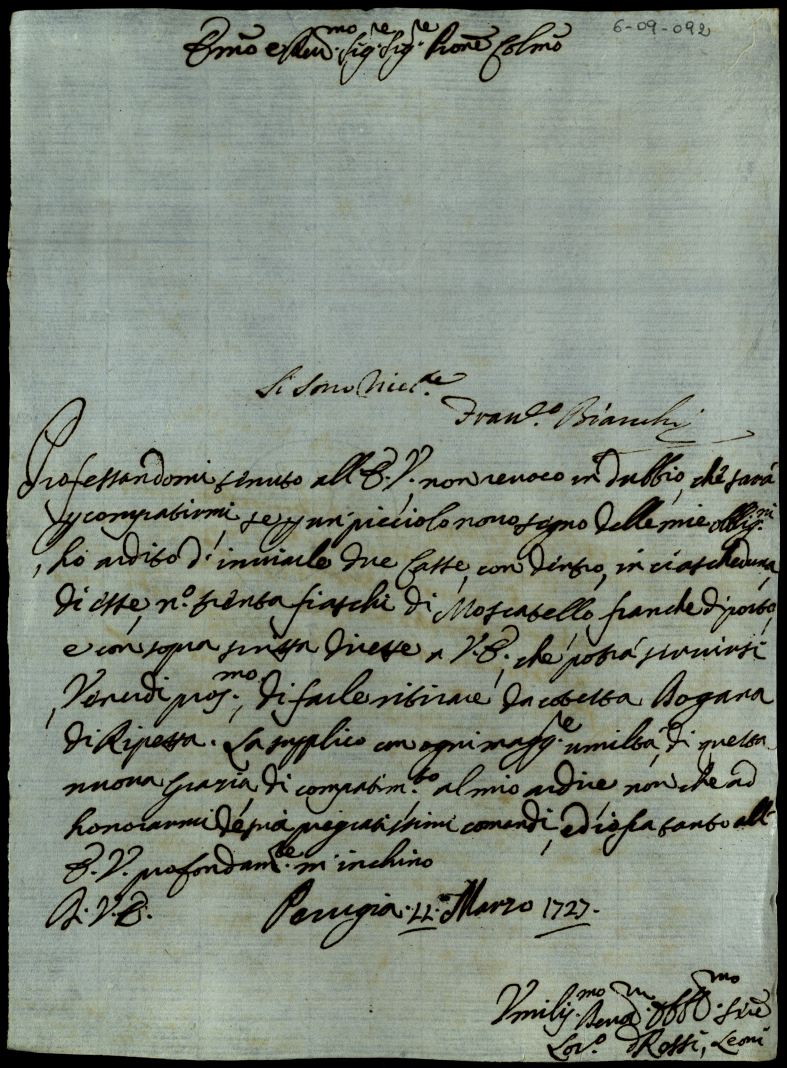 6-09-092
Emo e Revmo Sigre Sigre Prone Colmo
Si sono ricete
Franco. Bianchi
Professandomi tenuto all'E. V. non revoco in dubbio, che sarà
p compatirmi, se p un picciolo novo segno delle mie obligni
, ho ardito d'inviarle due Casse, con dentro, in ciascheduna
di esse, no. trenta fiaschi di Moscatello franche di porto,
e con sopra scritta dirette a V. E., che potrà servirsi
, Venerdi prosmo., di farle ritirare da cotesta Dogana
di Ripetta. La supplico con ogni maggre umiltà di questa
nuova grazia, di compatimto al mio ardire non che ad
honorarmi de suoi pregiatissimi comandi, ed io fra tanto all'
E. V. profondamte m'inchino
D. V. E. Perugia. 11. Marzo 1727.
Vmilismo Devmo Obblmo Sre
Lovo. Rossi, Leoni